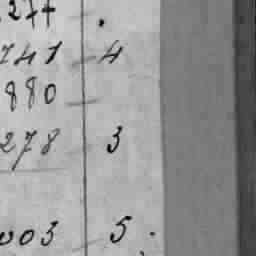 277 .
741 4
880
278 3
003 5.